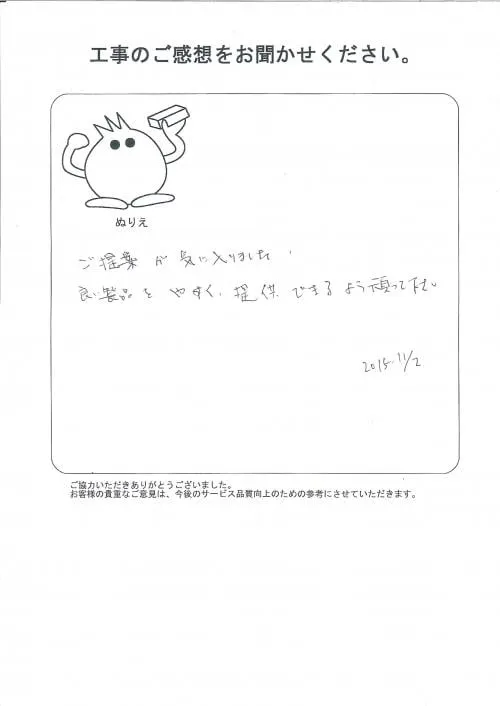 工事のご感想をお聞かせください。
ぬりえ
ご提案が気に入りました!
良い製品をやすく、提供できるよう頑って下さい
2015.11/2
ご協力いただきありがとうございました。
お客様の貴重なご意見は、今後のサービス品質向上のための参考にさせていただきます。